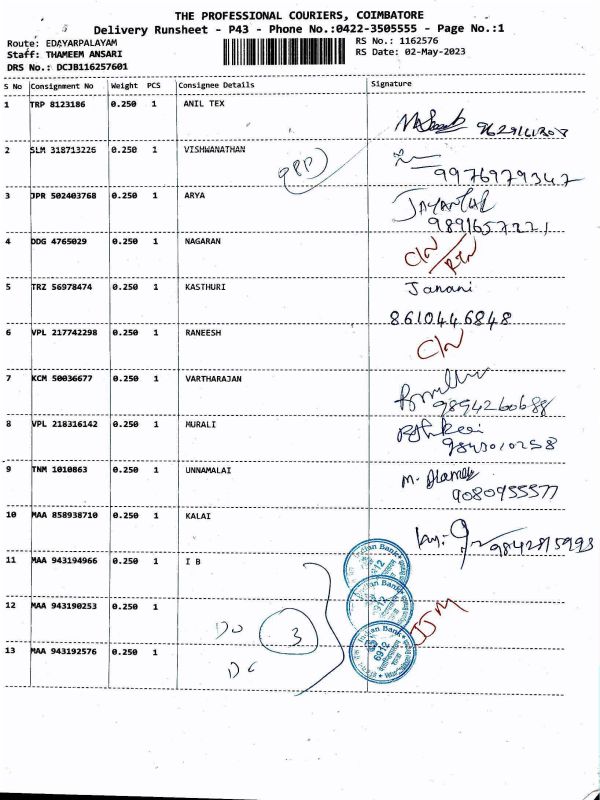 THE PROFESSIONAL COURIERS, COIMBATORE
Delivery Runsheet - P43 - Phone No.:0422-3505555 - Page No.:1
Route: EDAYARPALAYAM
RS No.: 1162576
Staff: THAMEEM ANSARI
RS Date: 02-May-2023
DRS No.: DCJB116257601
S No Consignment No Weight PCS Consignee Details Signature
1 TRP 8123186 0.250 1 ANIL TEX
2 SLM 318713226 0.250 1 VISHWANATHAN
9976979347
3 JPR 502403768 0.250 1 ARYA
9891657221
4 DDG 4765029 0.250 1 NAGARAN
C/N
5 TRZ 56978474 0.250 1 KASTHURI Janani
8610446848
6 VPL 217742298 0.250 1 RANEESH
C/N
7 KCM 50036677 0.250 1 VARTHARAJAN
9894260688
8 VPL 218316142 0.250 1 MURALI
9843010258
9 TNM 1010863 0.250 1 UNNAMALAI
9080955577
10 MAA 858938710 0.250 1 KALAI
9842815993
11 MAA 943194966 0.250 1 I B
Indian Bank
12 MAA 943190253 0.250 1
3
13 MAA 943192576 0.250 1
Indian Bank
6912